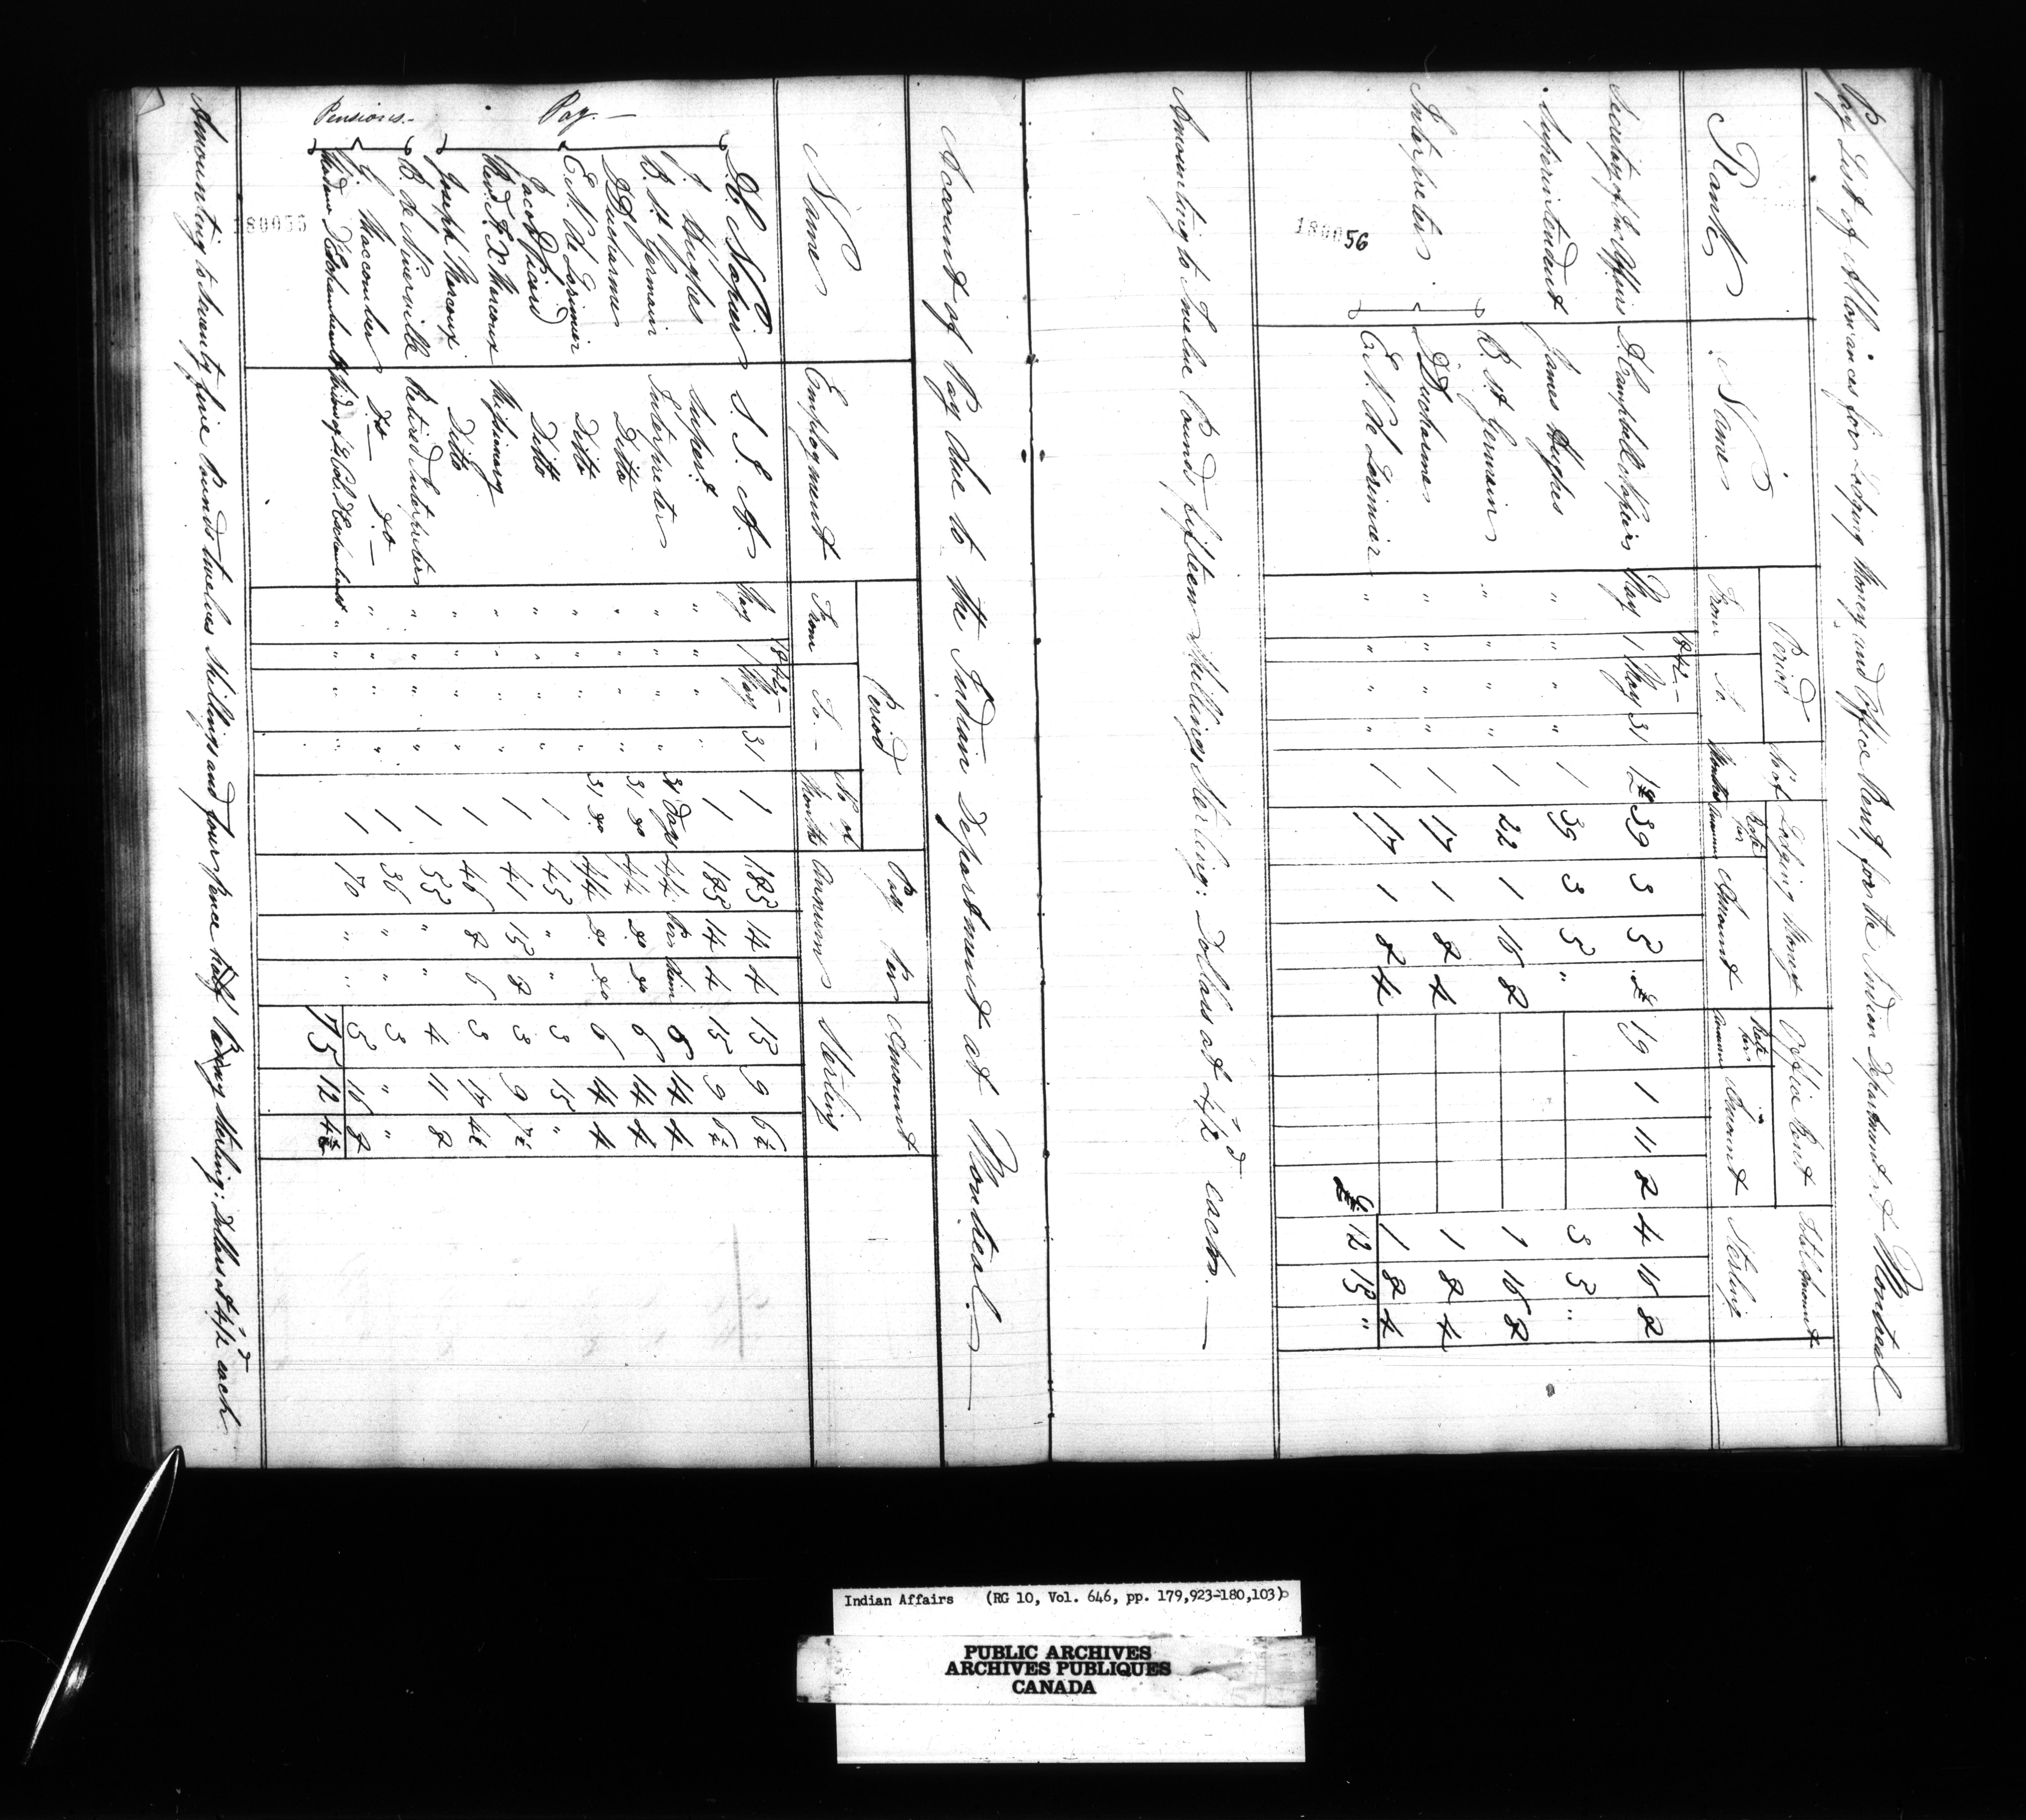 Account of Pay due to the Indian Department at Montreal.—
Name Employment Period Pay per Annum Amount Sterling
From To – No of Months
1842 –
Pay.—
D. C. Napier S. I. A. May 1 May 31 1 185 14 4 15 9 6¼
J. Hughes Supert " " " " 1 185 14 4 15 9 6¼
B. St Germain Interpreter " " " " 31 Days 4/4 Per diem 6 14 4
D Ducharme Ditto " " " " 31 do 4/4 do do 6 14 4
E. N. de Lorimier Ditto " " " " 31 do 4/4 do do 6 14 4
Jacob Picard Ditto " " " " 1 45 " " 3 15 "
Revd F. X. Marcoux Missionary " " " " 1 41 15 8 3 9 7½
Joseph Marcoux Ditto " " " " 1 46 8 6 3 17 4½
Pensions.—
B. de Niverville Retired Interpreter " " " " 1 55 " " 4 11 8
G. Maccomber Do — do — " " " " 1 36 " " 3 " "
Widow D'Eschambault Widow of Lt Col. D'Eschambault " " " " 1 70 " " 5 16 8
75 12 4½
Amounting to Seventy five Pounds twelve Shillings and four pence half Penny Sterling: Dollars at 4/2d each
180055
Pay List of Allowances for Lodging Money and Office Rent, for the Indian Department at Montreal
Rank Name Period No of Months Lodging Money Office Rent Total Amount Sterling
From To. Rate per Annum Amount Rate per Annum Amount
1842 –
Secretary of Ind. Affairs D Campbell Napier May 1 May 31 1 £39 3 5 " 19 1 11 8 4 16 8
Superintendent James Hughes " " " " 1 39 3 5 " 3 5 "
Interpreters
B. St Germain " " " " 1 22 1 16 8 1 16 8
D. Ducharme " " " " 1 17 1 8 4 1 8 4
E. N. de Lorimier " " " " 1 17 1 8 4 1 8 4
£ 12 15 "
Amounting to Twelve Pounds fifteen Shillings Sterling: Dollars at 4/2d each.—
180056
Indian Affairs (RG 10, Vol. 646, pp. 179,923-180,103)
PUBLIC ARCHIVES
ARCHIVES PUBLIQUES
CANADA